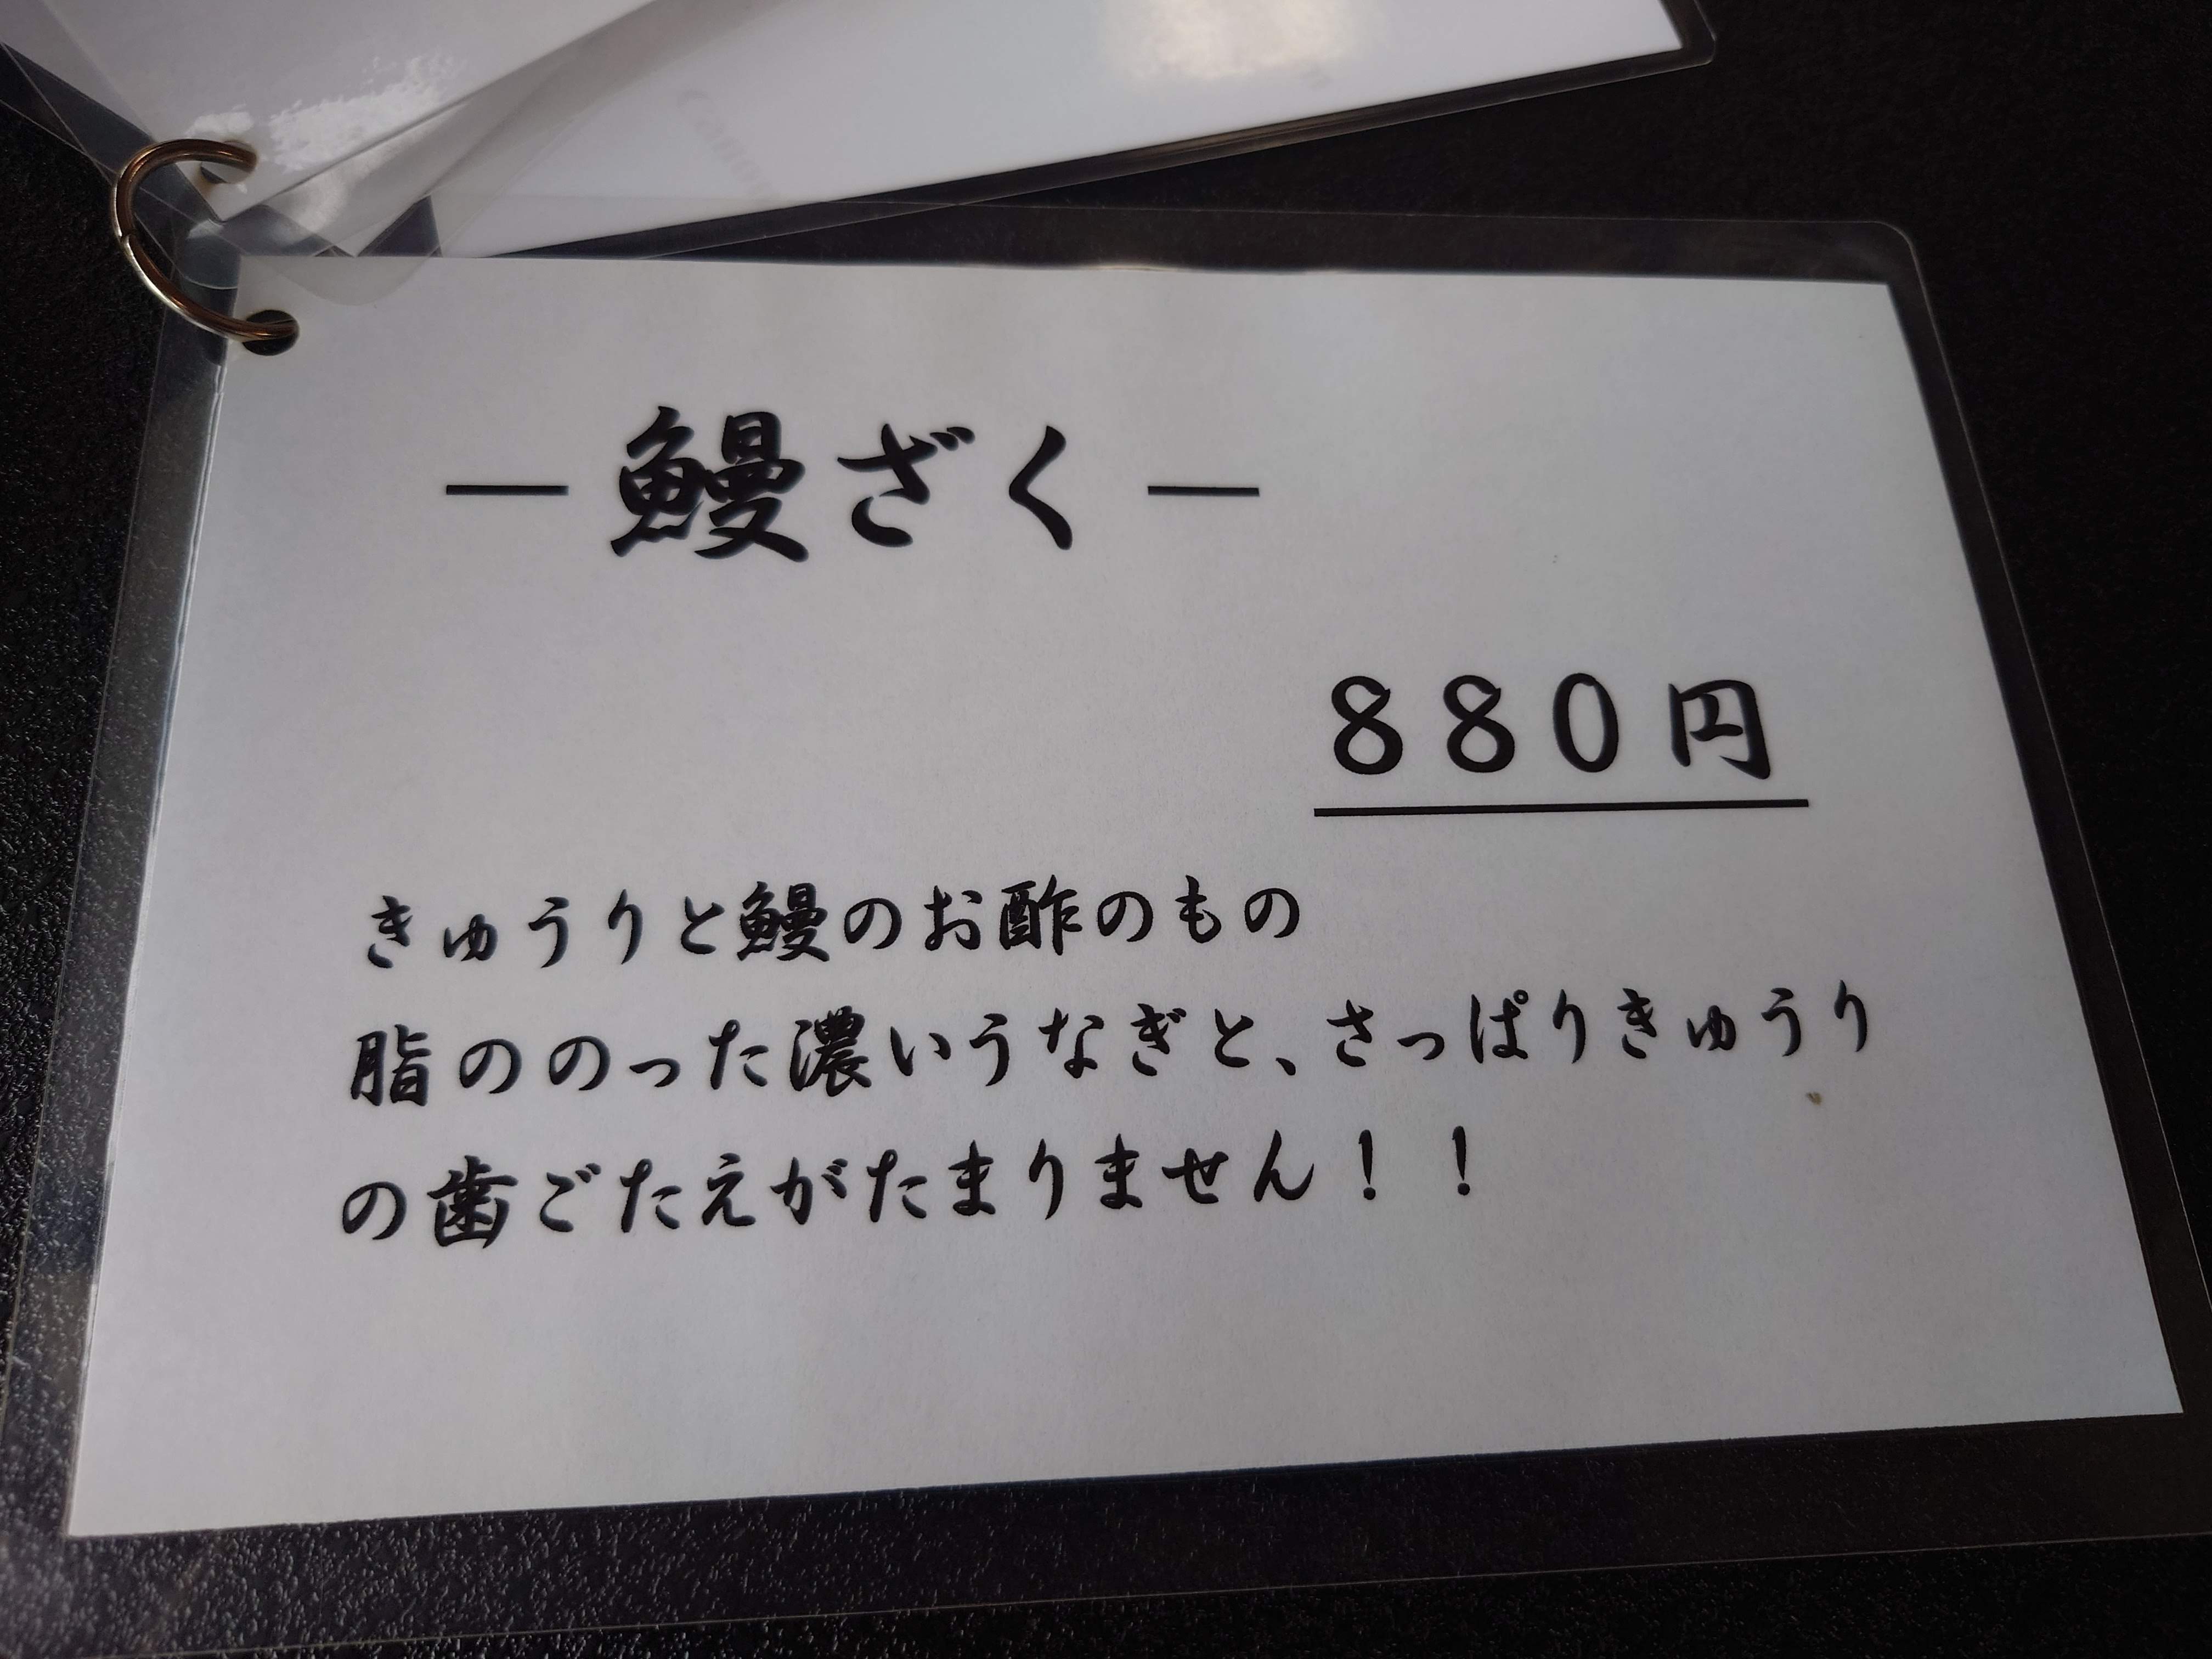 Canon
― 鰻ざく ―
８８０円
きゅうりと鰻のお酢のもの
脂ののった濃いうなぎと、さっぱりきゅうり
の歯ごたえがたまりません！！